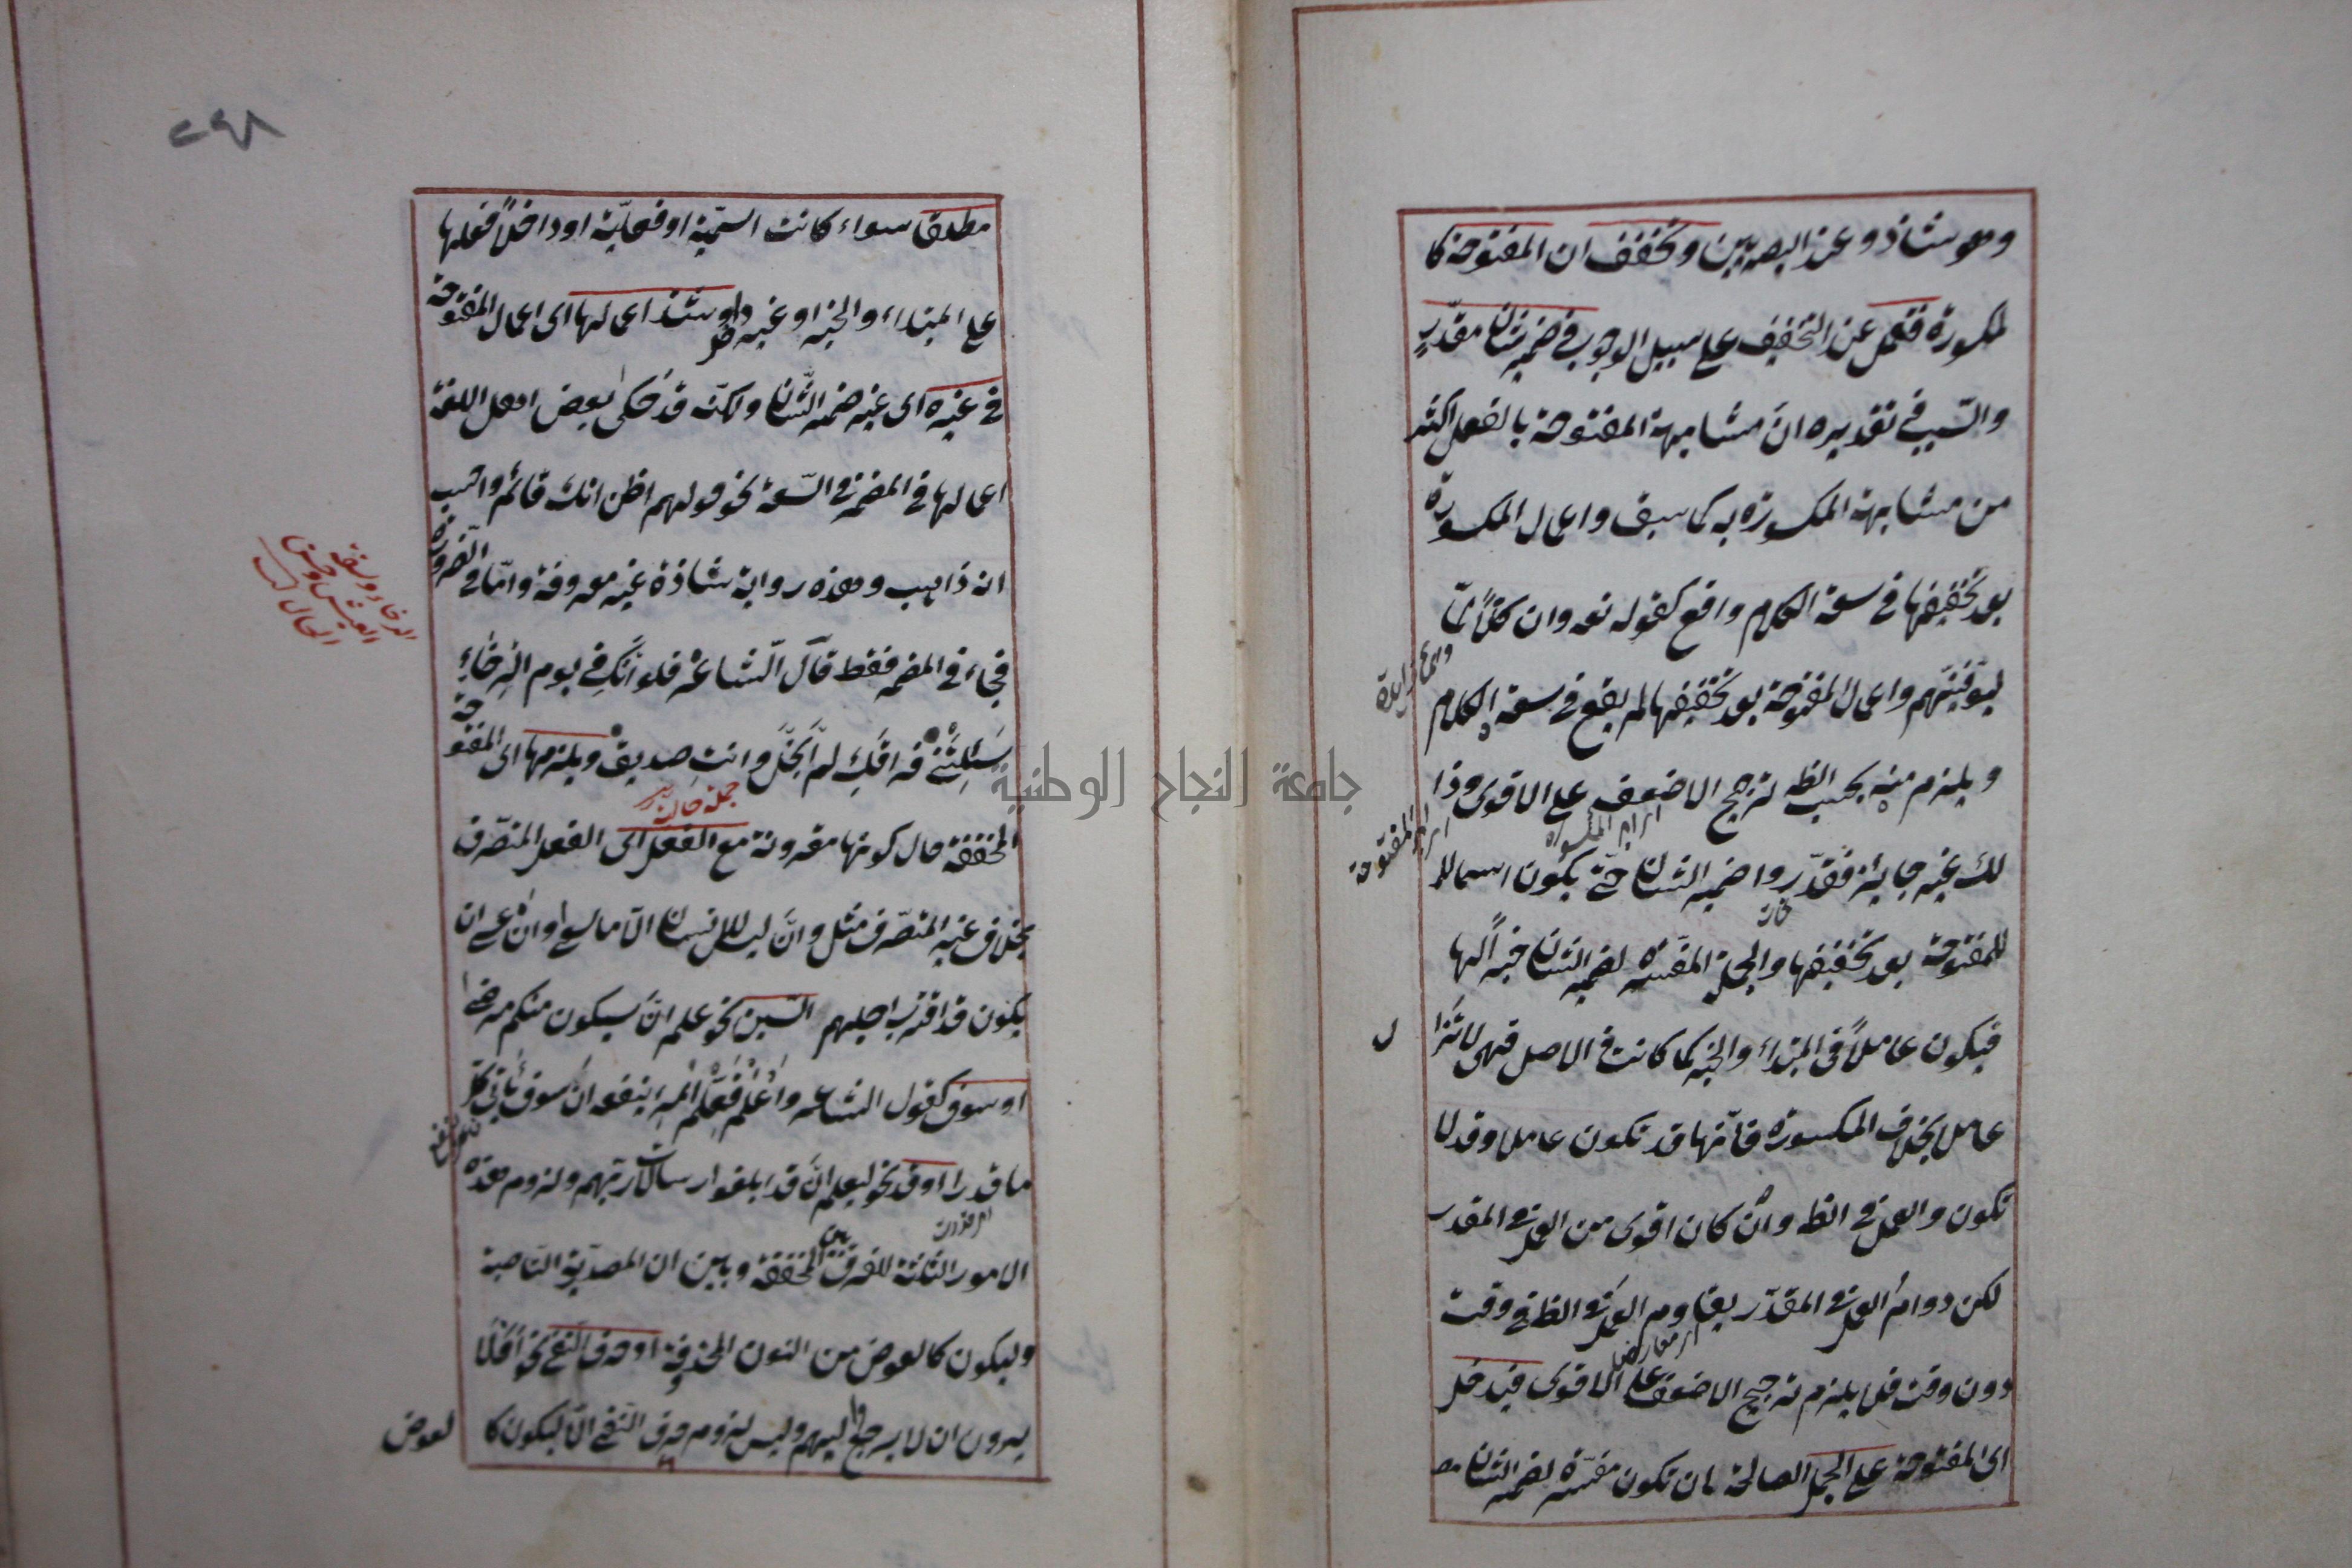 وهو شاذ وعند البصريين وتخفف ان المفتوحة كا
لمكسورة فتعمل عند التخفيف على سبيل الوجوب في ضمير شان مقدر
والسبب في تقديره ان مشابهة المفتوحة بالفعل اكثر
من مشابهة المكسورة به كما سبق واعمال المكسورة
بعد تخفيفها في سعة الكلام واقع كقوله تعه وان كلاً لمّا
ليوفينّهم واعمال المفتوحة بعد تخفيفها لم يقع في سعة الكلام
ويلزم منه بحسب الظه ترجيح الاضعف على الاقوى وذا
اى ان المكسورة
اى ان المفتوحة
لك غير جائز فقدّروا ضمير الشان حتى يكون اسما لا
للمفتوحة بعد تخفيفها والجملة المفسرة لضمير الشان خبراً لها
فيكون عاملاً في المبتداء والخبر كما كانت في الاصل فهى لا تزا
ل
عامل بخلاف المكسورة فانّها قد تكون عاملا وقد لا
تكون والعمل في الظه وان كان اقوى من العمل في المقدر
لكن دوام العمل في المقدّر يقاوم العمل في الظ في وقت
دون وقت فلا يلزم ترجيح الاضعف على الاقوى فيدخل
اى المفتوحة على الجمل الصالحة لان تكون مفسّرة لضمير الشان مط
٢٤٨
مطلقا سواء كانت اسميّة او فعليّة او داخلاً فعلها
على المبتداء والخبر او غيره وشذ اعمالها اى اعمال المفتوحة
في غيره اى غير ضمير الشّان ولكنّه قد حكى بعض اهل اللغة
اعمالها في المضمر في السّعة نحو قولهم اظن انك قائم واحسب
انه ذاهب وهذه رواية شاذة غير معروفة وامّا في الضرورة
الرخاء وسعة
العيش وحسن
الحال
فجاء في المضمر فقط قال الشاعر فلو انّكِ في يوم الرخاءِ
سَئلتَنى فراقَكِ لم ابخَل وانتِ صديق ويلزمها اى المفتوحة
جملة حالية
المخففة حال كونها مقرونة مع الفعل اى الفعل المتصّرف
بخلاف غير المتصّرف مثل وانْ ليس للانسان الّا ما سعى وان عسى ان
يكون قد اقترب اجلهم السّين نحو علم ان سيكون منكم مرضى
او سوف كقول الشاعر واعلم فعلم المرء ينفعه ان سوف يأتى كل
ما قدرا او قد نحو ليعلم ان قد ابلغوا رسالات ربّهم ولزوم هذه
الامور الثلثة للفرق بين المخففة وبين ان المصدريّة النّاصبة
وليكون كالعوض من النون المحذوفة او حرف النّفى نحو أفلا
يرون ان لا يرجع اليهم وليس لزوم حرف النّفى الّا ليكون كا
لعوض
جامعة النجاح الوطنية